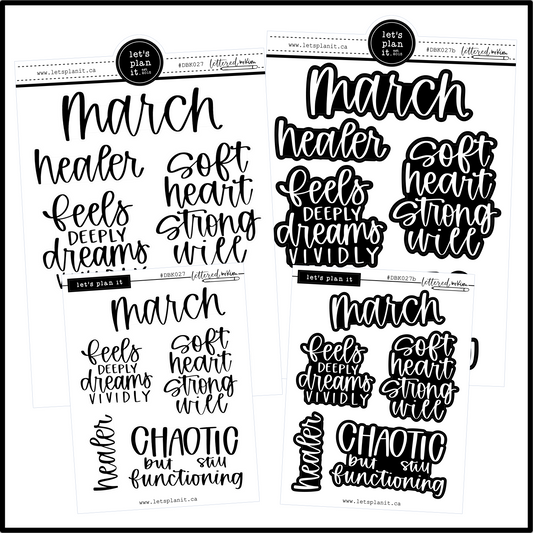 let's
plan
it.
est.
2015
www.letsplanit.ca
#DBK027
lettered by Kim
march
healer
soft
heart
strong
will
feels
DEEPLY
dreams
VIVIDLY
let's
plan
it.
est.
2015
www.letsplanit.ca
#DBK027b
lettered by Kim
march
healer
soft
heart
strong
will
feels
DEEPLY
dreams
VIVIDLY
let's plan it
#DBK027
lettered by Kim
march
feels
DEEPLY
dreams
VIVIDLY
soft
heart
strong
will
healer
CHAOTIC
but still
functioning
www.letsplanit.ca
let's plan it
#DBK027b
lettered by Kim
march
feels
DEEPLY
dreams
VIVIDLY
soft
heart
strong
will
healer
CHAOTIC
but still
functioning
www.letsplanit.ca